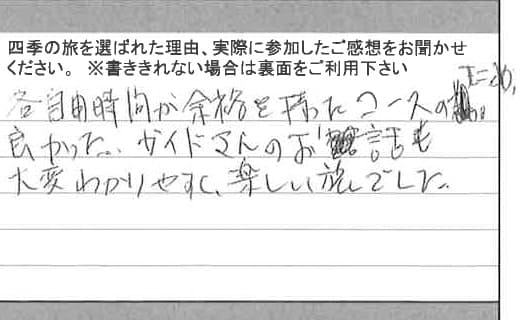 四季の旅を選ばれた理由、実際に参加したご感想をお聞かせ
ください。 ※書ききれない場合は裏面をご利用下さい
各自由時間が余裕を持ったコースのため、
良かった。ガイドさんのお話も
大変わかりやすく、楽しい旅でした。